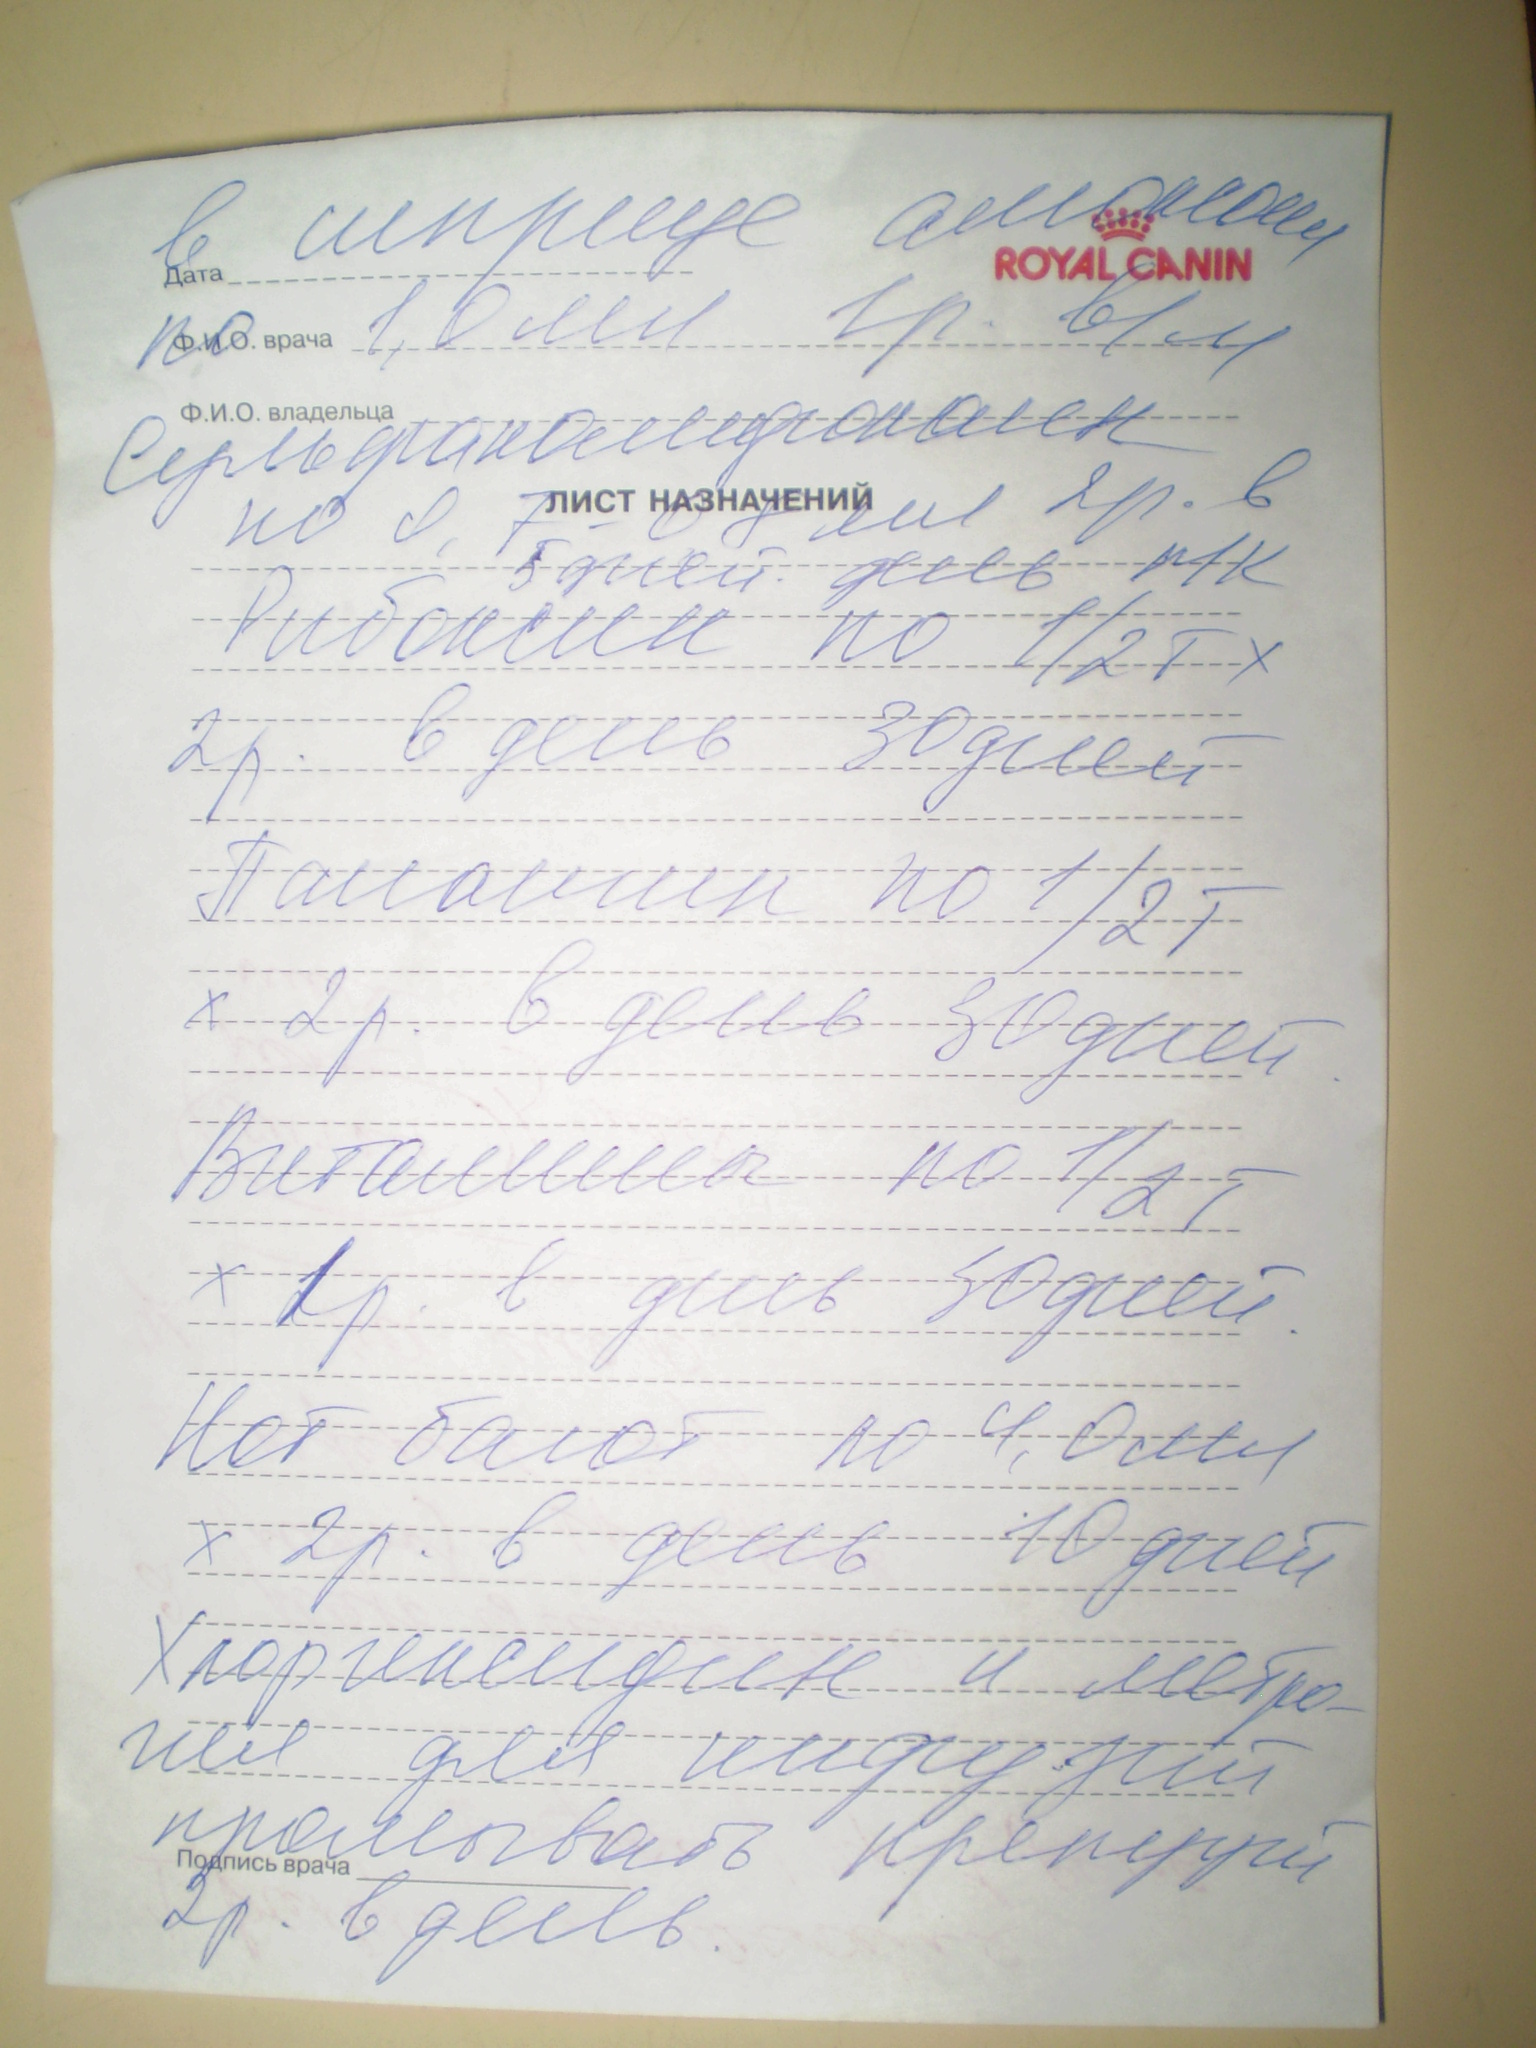 в шприце
ROYAL CANIN
Дата
по 1,0 мл 1р. в/м
Ф.И.О. врача
Ф.И.О. владельца
Сульфакамфокаин
ЛИСТ НАЗНАЧЕНИЙ
по 0,7-0,8 мл 2р. в
5 дней. день п/к
Рибоксин по 1/2 т х
2р. в день 30 дней
по 1/2 т
х 2р. в день 30 дней.
Витамины по 1/2 т
х 1р. в день 30 дней.
Кот по 4,0 мл
х 2р. в день 10 дней
Хлоргексидин и метро-
гил для инфузий
промывать препуций
Подпись врача
2р. в день.